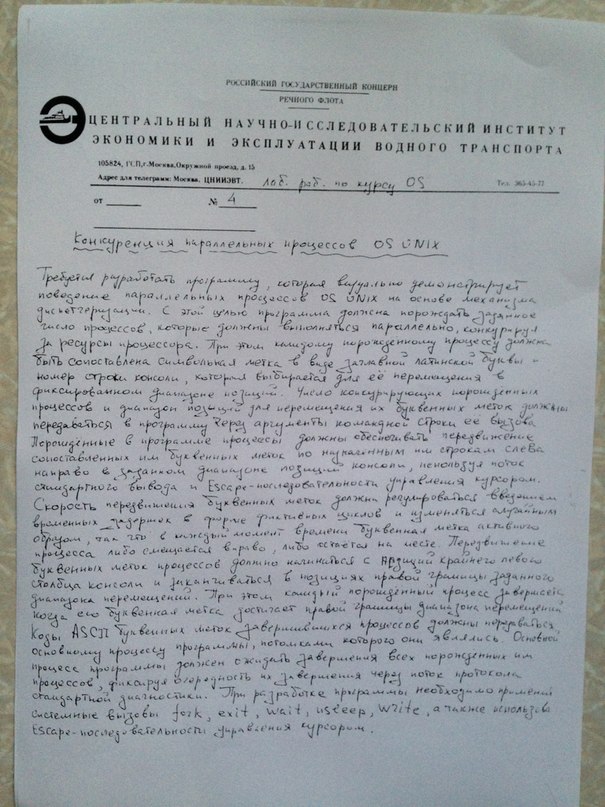 РОССИЙСКИЙ ГОСУДАРСТВЕННЫЙ КОНЦЕРН
РЕЧНОГО ФЛОТА
ЦЕНТРАЛЬНЫЙ НАУЧНО-ИССЛЕДОВАТЕЛЬСКИЙ ИНСТИТУТ
ЭКОНОМИКИ И ЭКСПЛУАТАЦИИ ВОДНОГО ТРАНСПОРТА
105824, ГСП, г. Москва, Окружной проезд, д. 15
Адрес для телеграмм: Москва, ЦНИИЭВТ. лаб. раб. по курсу OS Тел. 365-45-77
от № 4
Конкуренция параллельных процессов OS UNIX
Требуется разработать программу, которая визуально демонстрирует
поведение параллельных процессов OS UNIX на основе механизма
диспетчеризации. С этой целью программа должна порождать заданное
число процессов, которые должны выполняться параллельно, конкурируя
за ресурсы процессора. При этом каждому порожденному процессу должна
быть сопоставлена символьная метка в виде заглавной латинской буквы и
номер строки консоли, которая выбирается для её перемещения в
фиксированном диапазоне позиций. Число конкурирующих порожденных
процессов и диапазон позиций для перемещения их буквенных меток должны
передаваться в программу через аргументы командной строки её вызова.
Порожденные в программе процессы должны обеспечивать передвижение
сопоставленных им буквенных меток по назначенным им строкам слева
направо в заданном диапазоне позиций консоли, используя поток
стандартного вывода и Escape-последовательности управления курсором.
Скорость передвижения буквенных меток должна регулироваться введением
временных задержек в форме фиктивных циклов и изменяться случайным
образом, так что в каждый момент времени буквенная метка активного
процесса либо смещается вправо, либо остаётся на месте. Передвижение
буквенных меток процессов должно начинаться с крайнего левого
столбца консоли и заканчиваться в позициях правой границы заданного
диапазона перемещений. При этом каждый порожденный процесс завершается
когда его буквенная метка достигает правой границы диапазона перемещений
Коды ASCII буквенных меток завершившихся процессов должны передаваться
основному процессу программы, потомками которого они являлись. Основной
процесс программы должен ожидать завершения всех порожденных им
процессов, фиксируя очередность их завершения через поток протокола
стандартной диагностики. При разработке программы необходимо применять
системные вызовы fork, exit, wait, usleep, write, а также использовать
Escape-последовательности управления курсором.